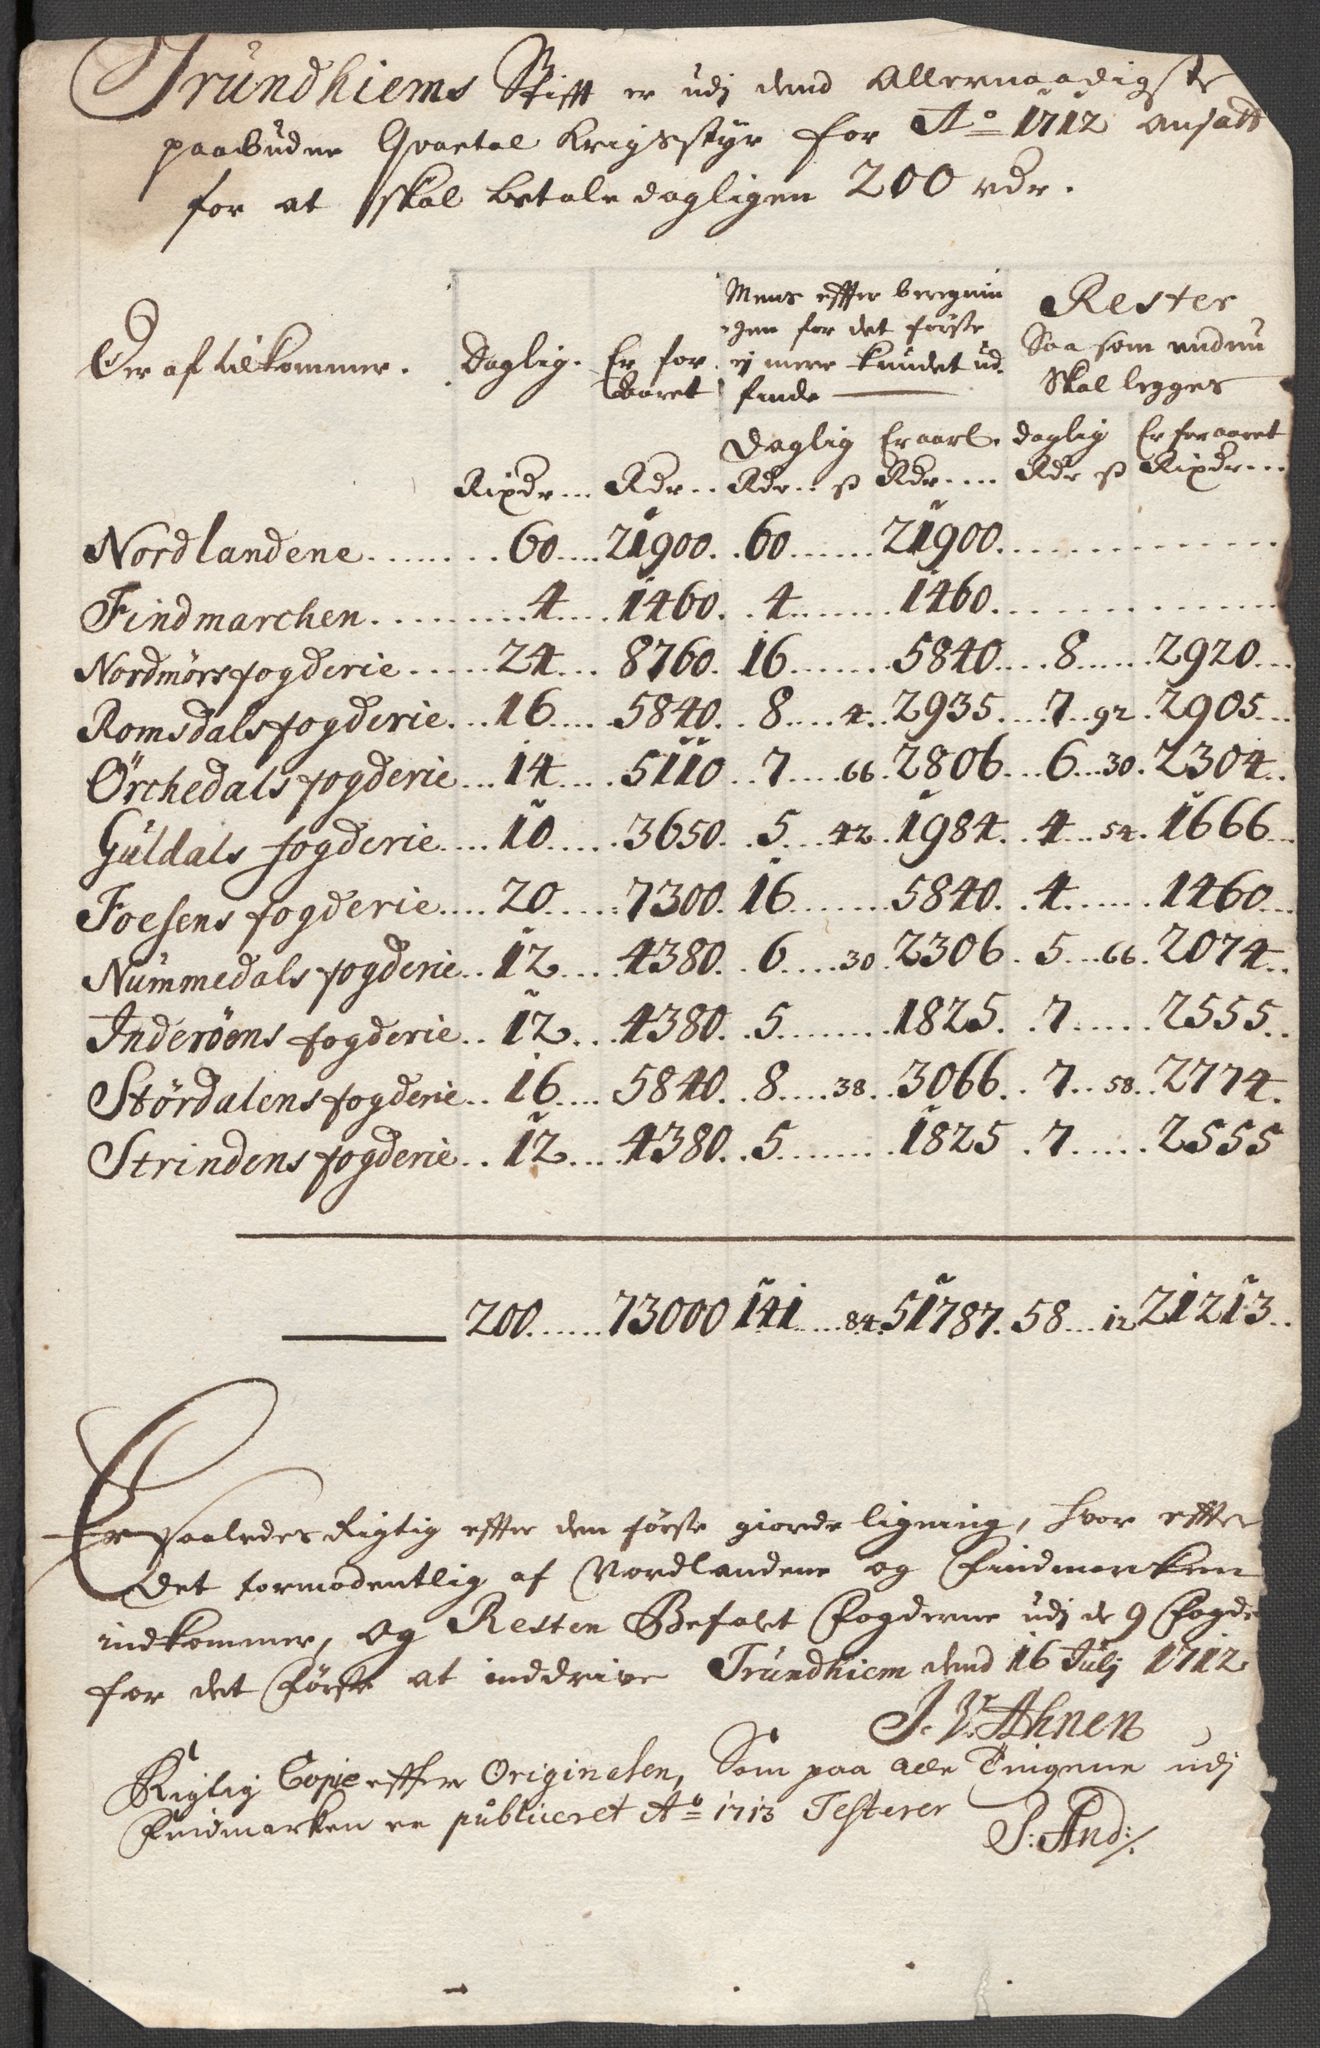 Trundhiems Stifft er udj dend Allernaadigste
paabudne Qvartal Krigsstyr for Ao 1712 ansatt
for at skal betale dagligen 200 rdr.
Der af tilkommer. Daglig. Er for Aaret Mens effter beregnin gen for det første ej mere kundet ud finde Rester Saa som endnu Skal legges
Daglig Er aarl. daglig Er for aaret
Rixdr... Rdr.. Rdr.. ß Rdr.... Rdr ß Rixdr...
Nordlandene........ 60.... 21900. .60...... 21900.
Findmarchen......... 4.... 1460. .4....... 1460.
Nordmørs fogderie..... 24... 8760. 16....... 5840.... 8..... 2920...
Romsdals fogderie... 16.... 5840. 8.... 4.. 2935.... 7.. 92. 2905...
Örchedals fogderie... 14.... 5110.. 7.... 66. 2806... 6... 30. 2304..
Güldals fogderie.... 10..... 3650. .5.... 42. 1984. .4... 54. 1666...
Foesens fogderie.... 20..... 7300. 16....... 5840. .4...... 1460...
Nummedals fogderie.. 12.... 4380. .6.... 30 2306. 5... 66. 2074..
Inderöens fogderie.. 12... 4380. .5....... 1825. .7..... 2555..
Stördalens fogderie.. 16.... 5840. .8.... 38.. 3066. .7.. 58.. 2774.
Strindens fogderie.. 12.... 4380. .5........ 1825 .7..... 2555
200...... 73000 141.... 84. 51787. 58... 12 21213..
Er saaledes Rigtig effter den første giorde ligning, hvor effter
Det formodentlig af Nordlandene og Findmarken
indkommer, og Resten Befalet Fogderne udj de 9 Fogde
for det Første at inddrive Trundhiem dend 16 Julj 1712
J. V. Ahnen
Rigtig Copie effter Originalen, Som paa alle Tingene udj
Findmarken er publiceret Ao 1713 Testerer
S: And:/.